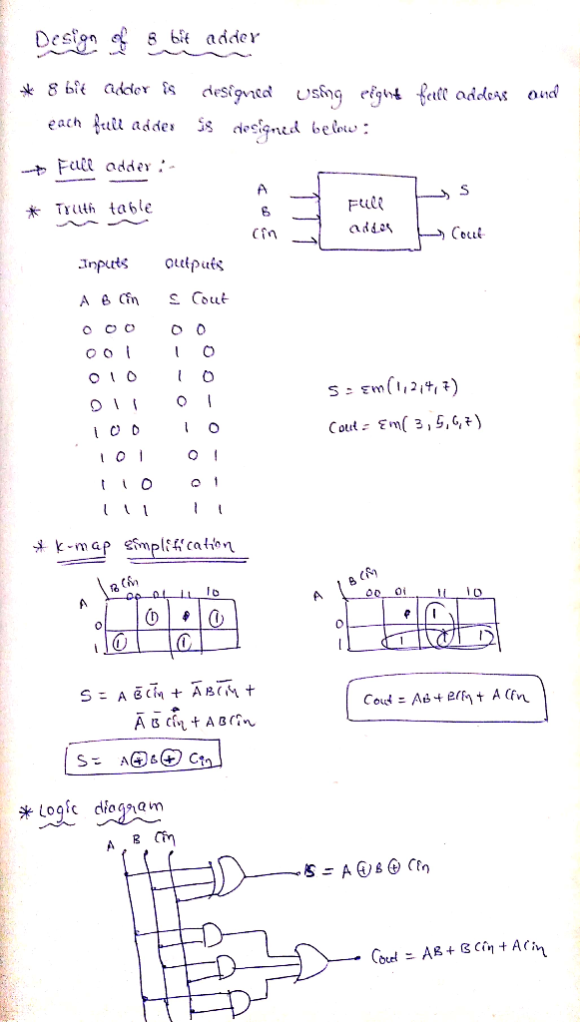 Design of 8 bit adder
* 8 bit adder is designed using eight full adders and
each full adder is designed below:
→ Full adder :-
* Truth table
A
B
Cin
Full
adder
S
Cout
Inputs Outputs
A B Cin S Cout
0 0 0 0 0
0 0 1 1 0
0 1 0 1 0
0 1 1 0 1
1 0 0 1 0
1 0 1 0 1
1 1 0 0 1
1 1 1 1 1
S = Σm(1,2,4,7)
Cout = Σm(3,5,6,7)
* K-map simplification
A B Cin
00 01 11 10
0 1 1
1 1 1
A B Cin
00 01 11 10
0 1
1 1 1 1
S = A B̅ C̅i̅n̅ + A̅ B C̅i̅n̅ +
A̅ B̅ Cin + A B Cin
S = A ⊕ B ⊕ Cin
Cout = AB + BCin + ACin
* Logic diagram
A B Cin
S = A ⊕ B ⊕ Cin
Cout = AB + B Cin + A Cin